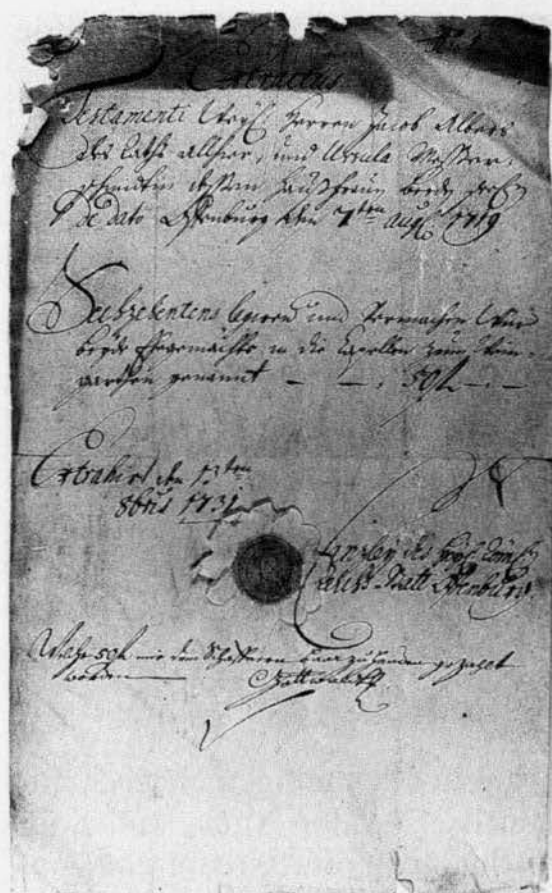 Extractus
Testamenti Weyl. Herren Jacob Albers
des Raths allhier, und Ursula Messer-
schmidtin dessen Haußfrauen beeder seel.
de dato Offenburg den 7ten aug. 1719
Sechzehentens legiren und vermachen Wür
beyde Ehegemächte in die Capellen zum
genannt — — . 50 fl — . —
Extrahirt den 13ten
8bris 1731
Canzley des
Reichs Statt Offenburg.
50 fl mir dem Schaffneren baar zu handen gezalt
worden